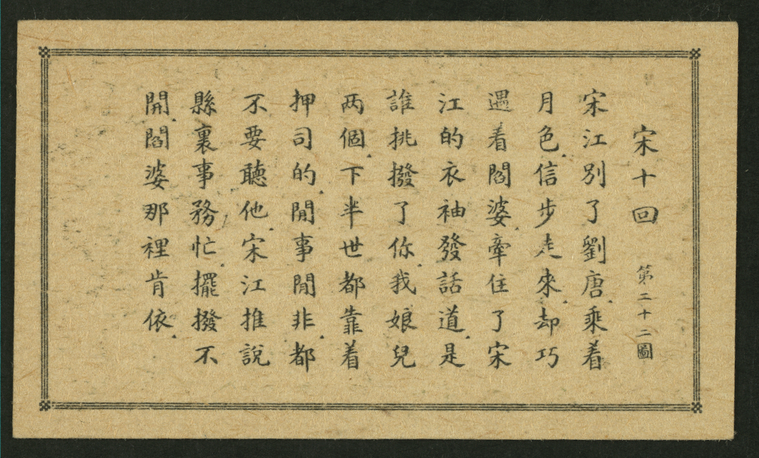 宋十回 第二十二圖
宋江別了劉唐.乘着
月色.信步走來.却巧
遇着閻婆.牽住了宋
江的衣袖發話道.是
誰挑撥了你.我娘兒
两個.下半世都靠着
押司的.閒事閒非.都
不要聽他.宋江推說
縣裏事務忙.擺撥不
開.閻婆那裡肯依.